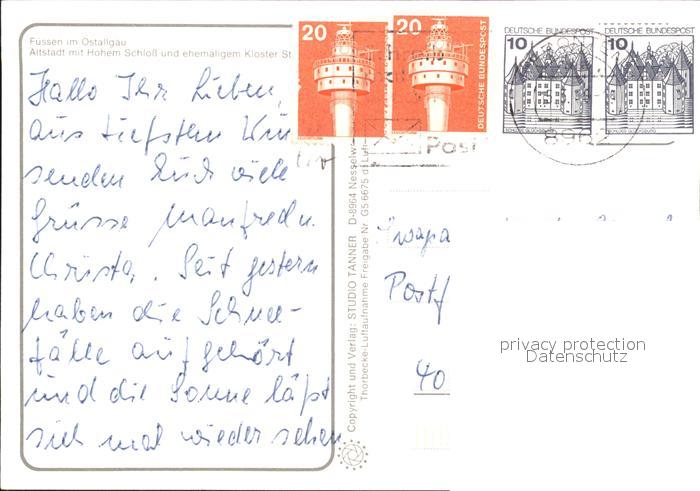 Füssen im Ostallgäu
Altstadt mit Hohem Schloß und ehemaligem Kloster St.
Hallo Ihr Lieben,
aus tiefsten Win
senden Euch viele
Grüsse Manfred u.
Christa. Seit gestern
haben die Schnee-
fälle aufgehört
und die Sonne läßt
sich mal wieder sehen
20
20
DEUTSCHE BUNDESPOST
10
DEUTSCHE BUNDESPOST
SCHLOSS GLÜCKSBURG
10
DEUTSCHE BUNDESPOST
SCHLOSS GLÜCKSBURG
Post
Copyright und Verlag: STUDIO TANNER D-8964 Nesselw
Thorbecke-Luftaufnahme Freigabe Nr. G5 6675 d. Luft
Postf
40
privacy protection
Datenschutz